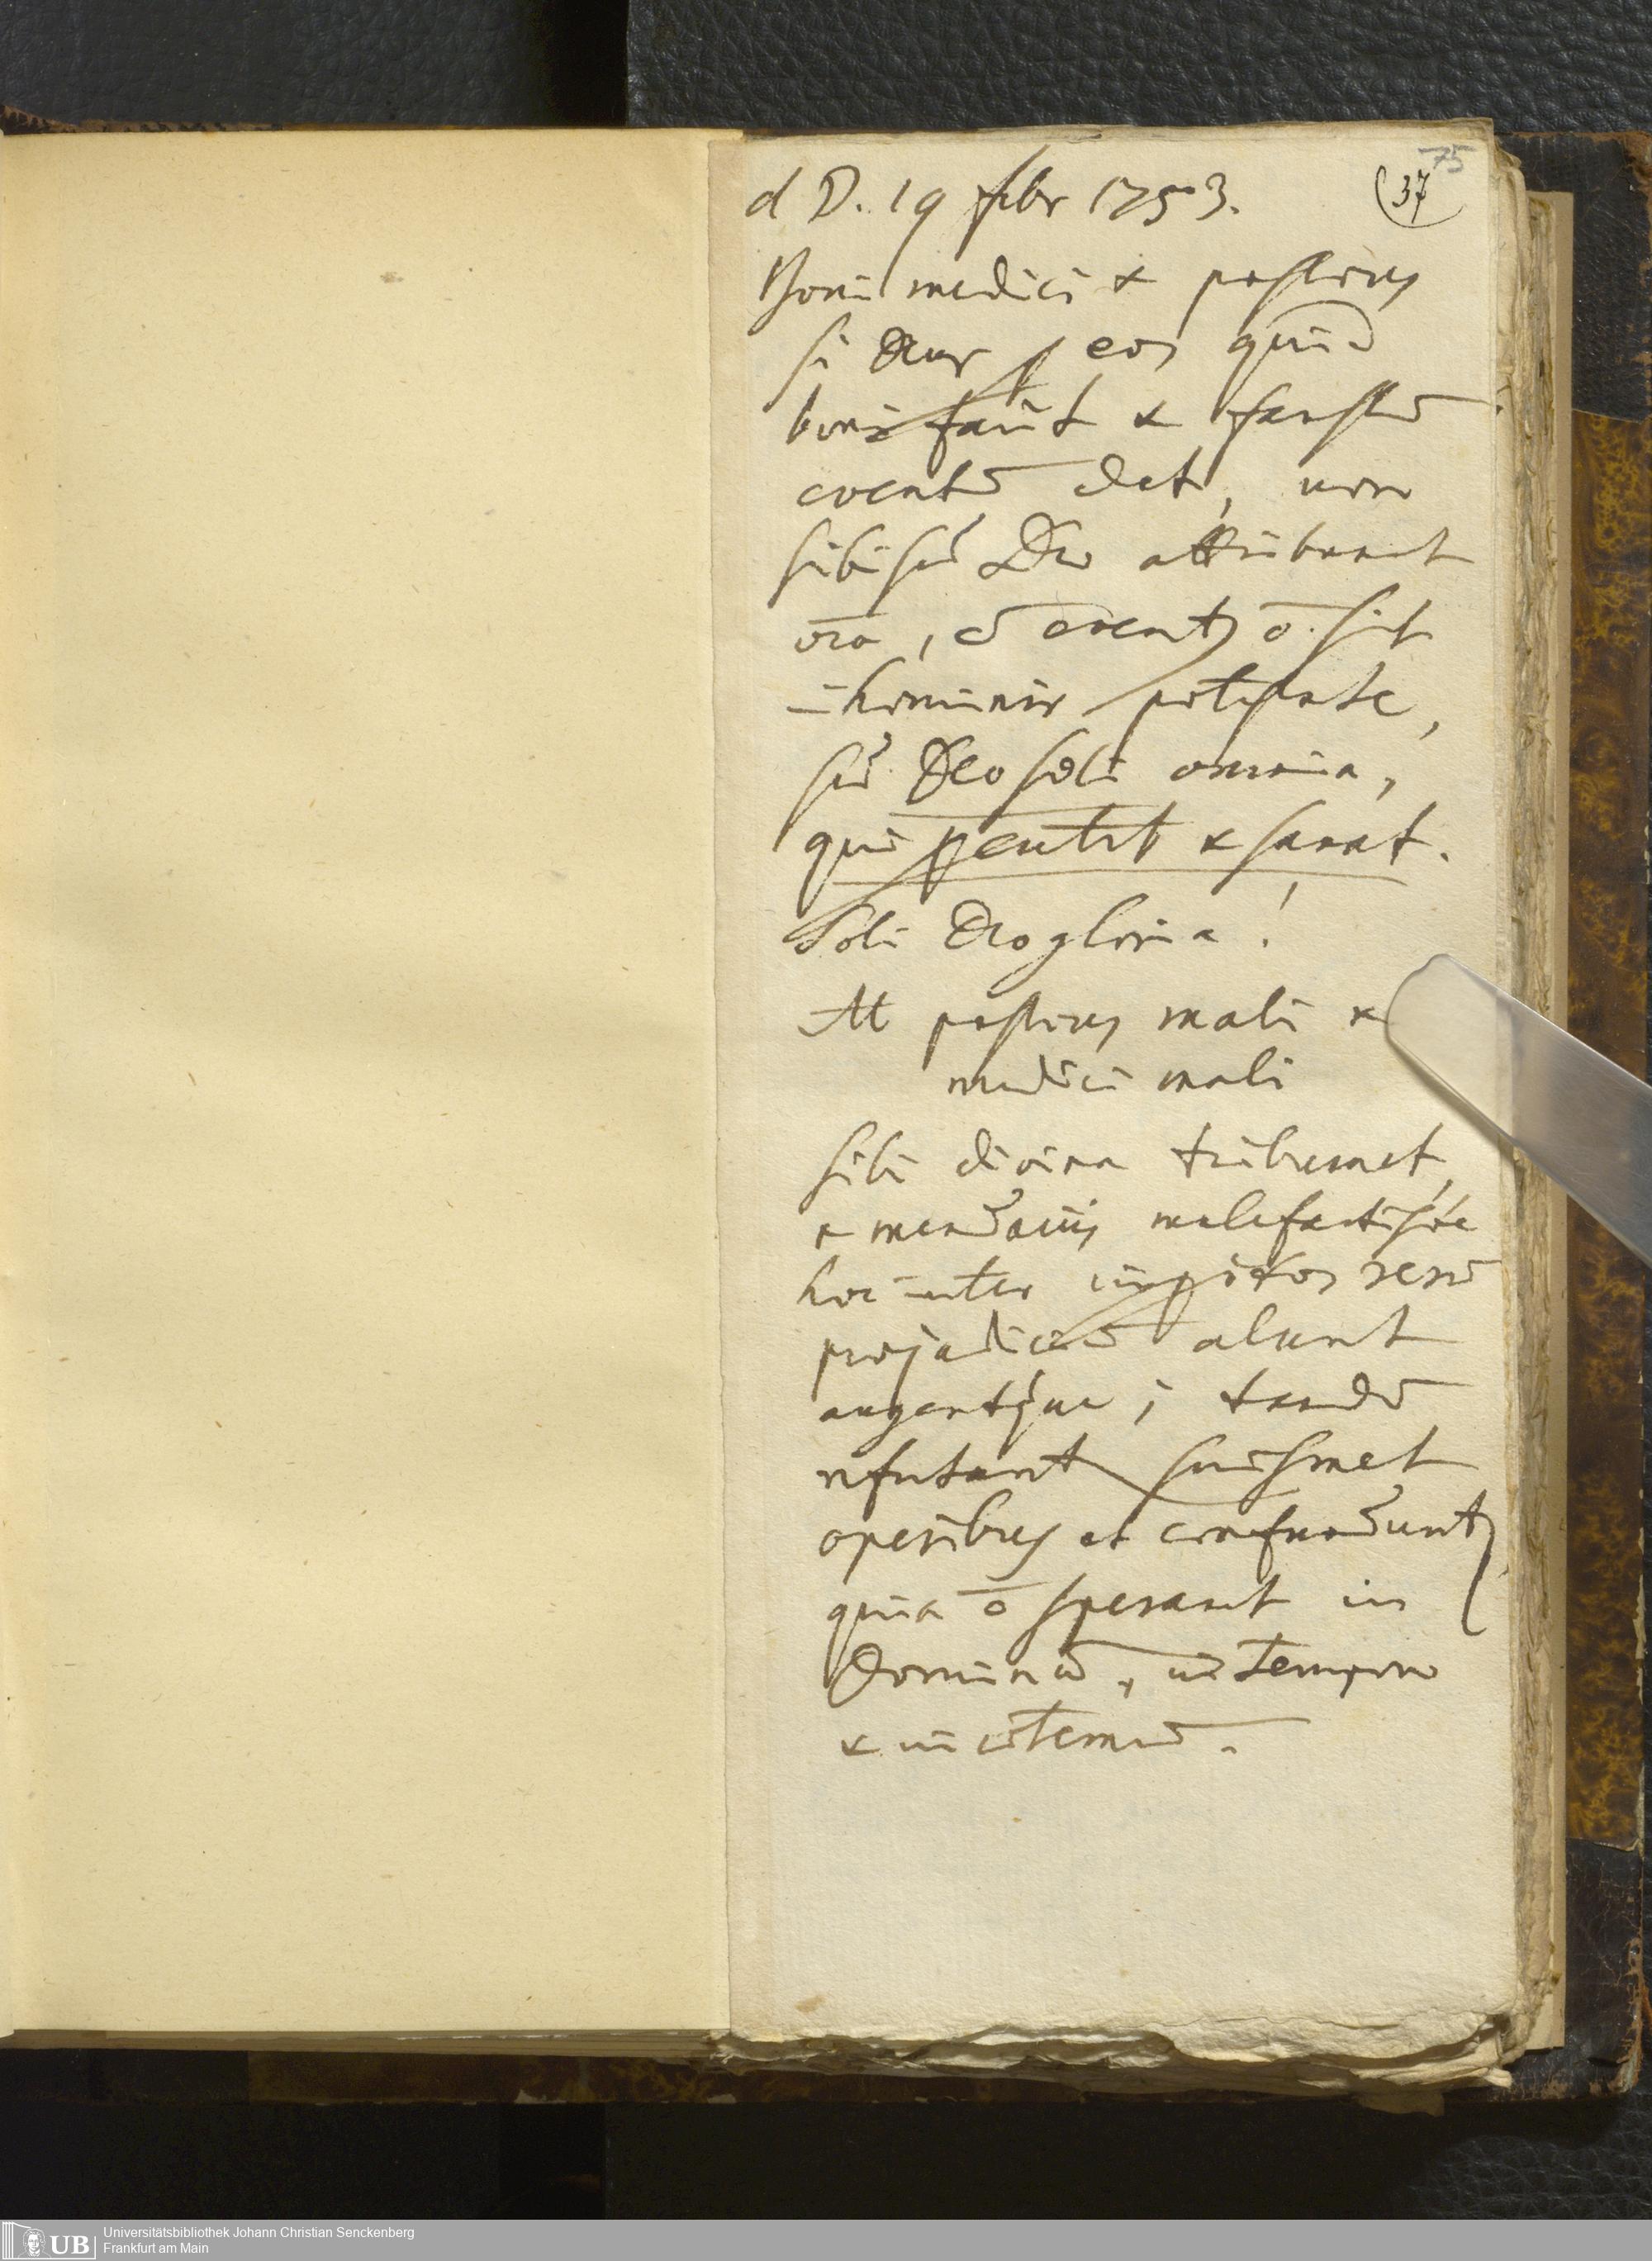 75
(37
d D. 19 febr 1753.
Boni medici & pastores
si Deus p eos quid
boni faciūt & faustū
eventū det, non
sibi sed Deo attribuunt
oīa, cū eventus ō sit
ī hominis potestate,
sed Deo soli omnia,
qui percutit & sanat.
Soli Deo gloria!
At pastores mali &
medici mali
sibi divina tribuunt,
& mendaciis malefactisque
hoc inter imperitos rerū
prejudiciū alunt
augentque; tandē
refutantur suismet
operibus et confunduntur,
quia ō sperarunt in
Dominū, in tempore
& in æternū.
UB
Universitätsbibliothek Johann Christian Senckenberg
Frankfurt am Main